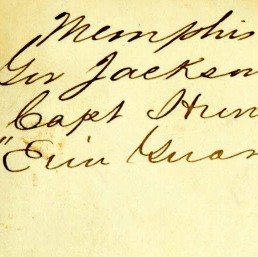 Memphis
Gov Jackson
Capt Hun
"Erin Guar